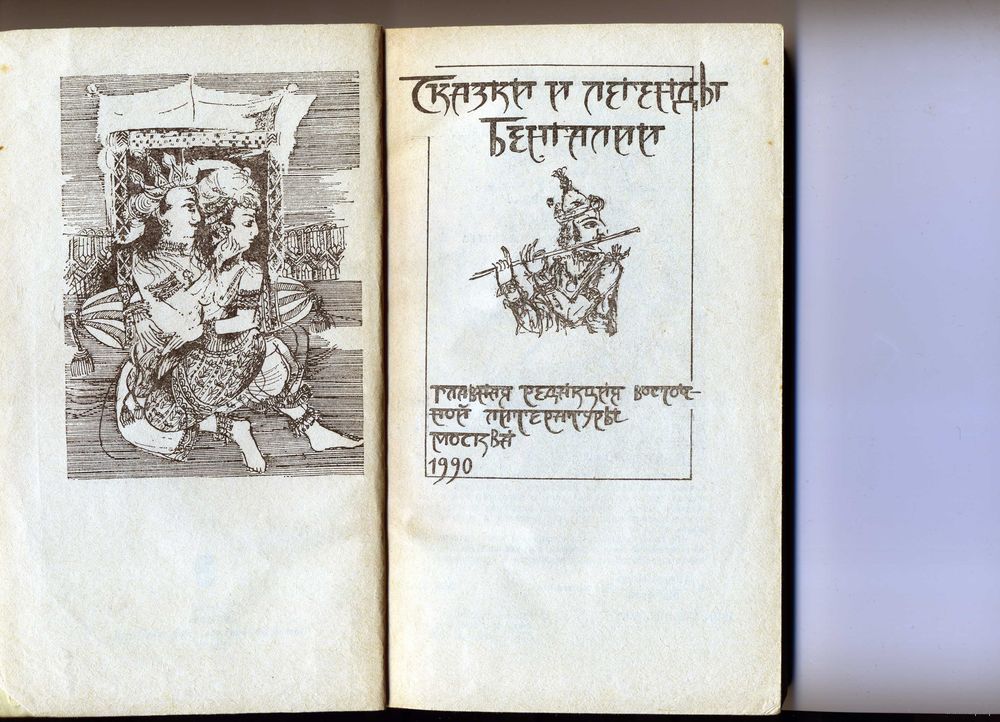 Сказки и легенды
Бенгалии
Главная редакция восточ-
ной литературы
Москва
1990